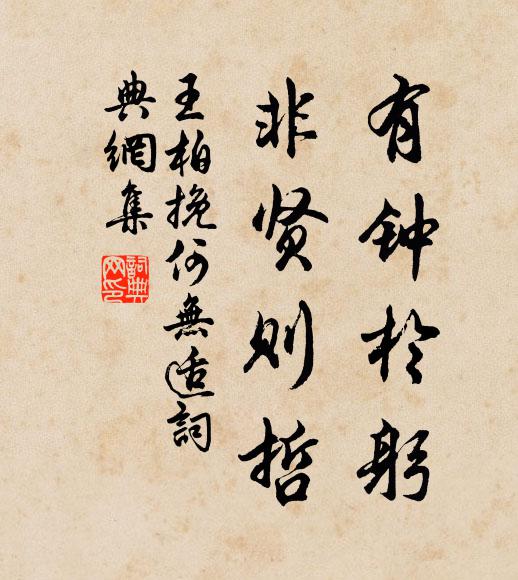 有钟於躬
非贤则哲
王柏挽何無适詞
典網集
詞典
网印